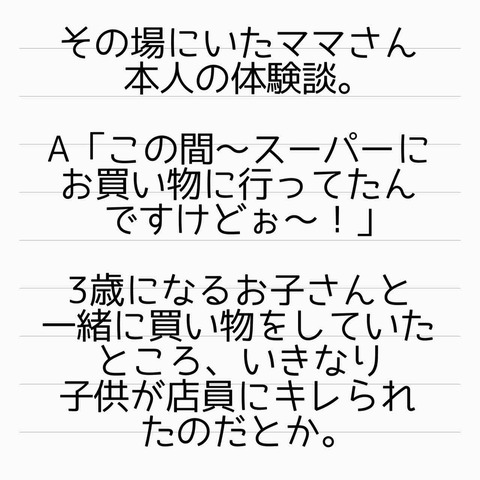 その場にいたママさん
本人の体験談。
A「この間〜スーパーに
お買い物に行ってたん
ですけどぉ〜！」
3歳になるお子さんと
一緒に買い物をしていた
ところ、いきなり
子供が店員にキレられ
たのだとか。